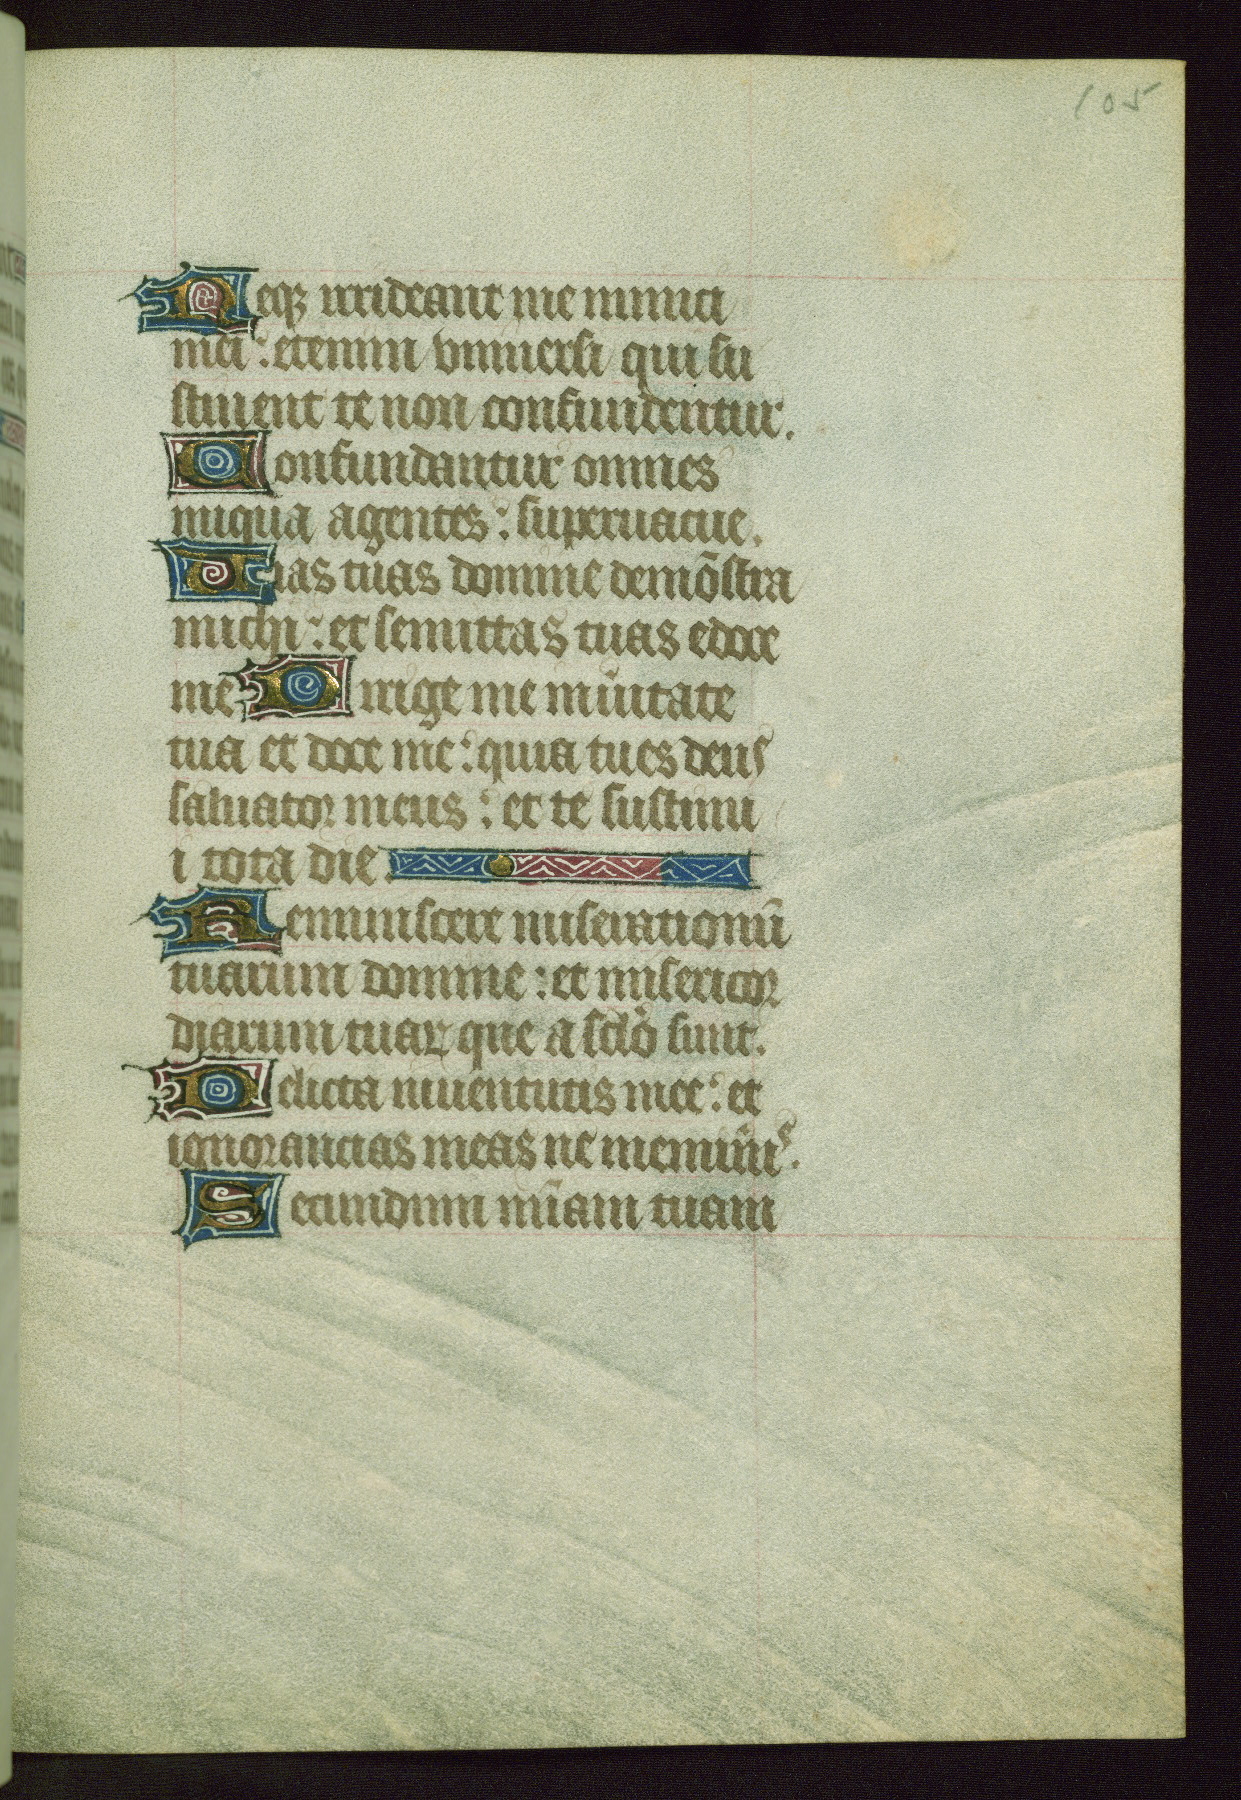 105
Neqꝫ irrideant me inimici
mei : etenim vniuersi qui su
stinent te non confundentur.
Confundantur omnes
iniqua agentes : superuacue.
Uias tuas domine demōstra
michi : et semittas tuas edoce
me Dirige me in ūitate
tua et doce me : quia tu es deus
saluator meus : et te sustinu
i tota die.
Reminiscere miserationū
tuarum domine : et misericor
diarum tuaꝝ que a sclō sunt.
Delicta iuuentutis mee : et
ignorancias meas ne memiñis.
Secundum mīam tuam